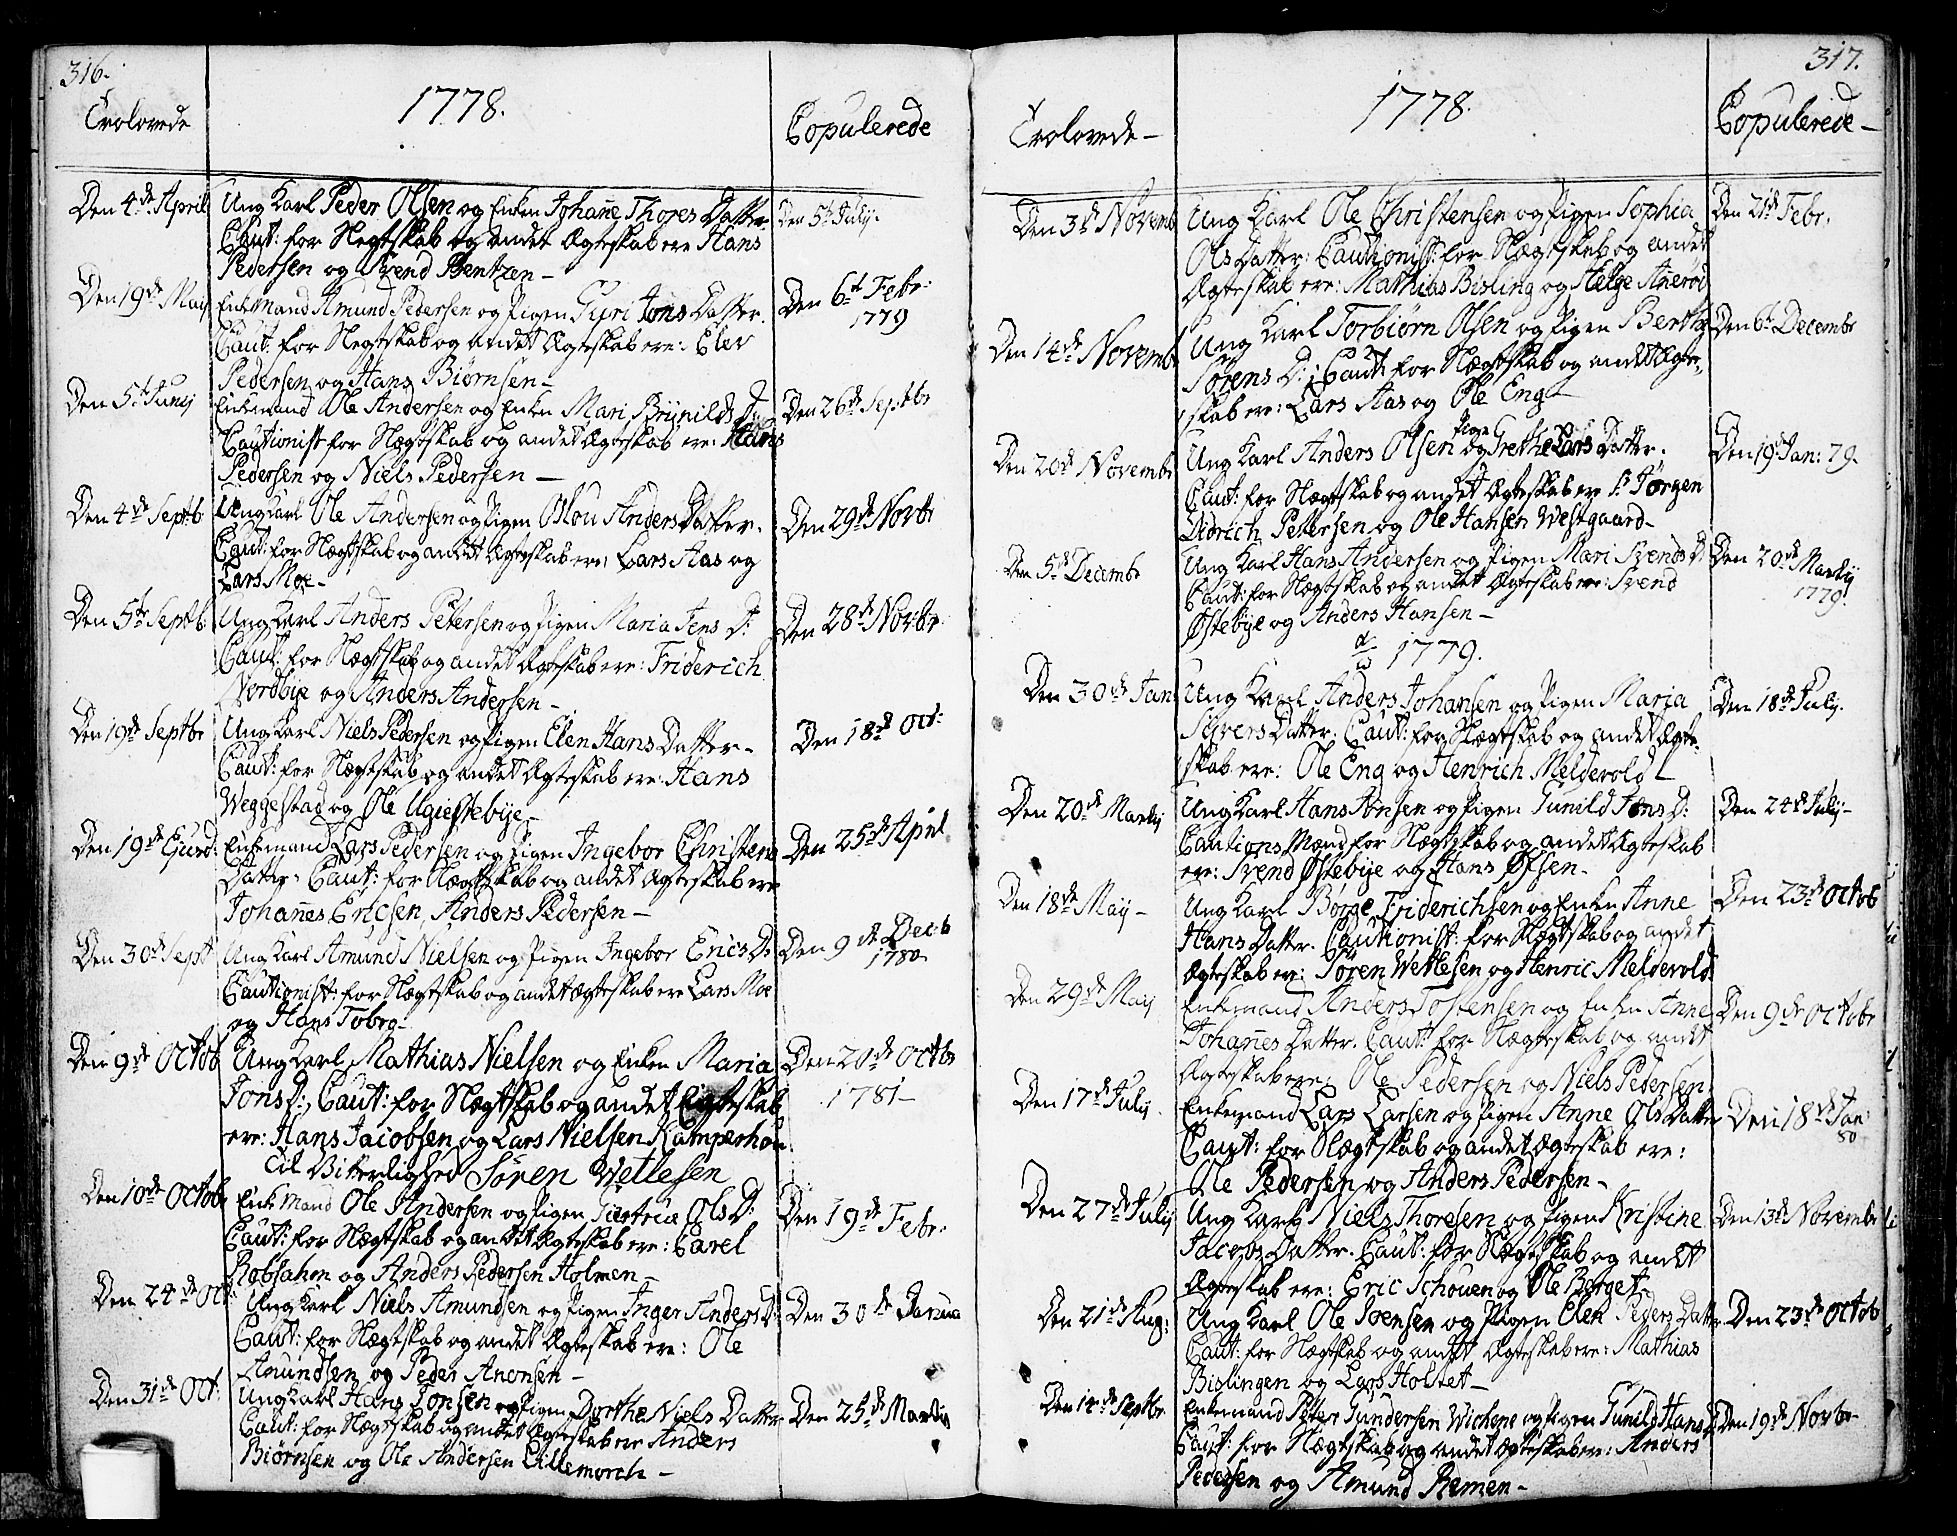 316.
Trolovede
1778.
Copulerede
Den 4de April
Ung Karl Peder Olsen og Enken Johanne Thores Datter.
Caut: for Slegtskab og andet Ægteskab ere Hans
Pedersen og Svend Bentzen –
Den 5t July.
Den 19de May
Enkemand Amund Pedersen og Pigen Guri Jons Datter.
Caut: for Slegtskab og andet Ægteskab ere: Elev
Pedersen og Hans Biørnsen –
Den 6t Febr:
1779
Den 5t Junij
Enkemand Ole Andersen og Enken Mari Brynilds D:
Cautionist for Slægtskab og andet Ægteskab ere: Hans
Pedersen og Niels Pedersen –
Den 26de Septbr
Den 4de Septb
Ung Karl Ole Andersen og Pigen Oslou Anders Datter.
Caut: for Slægtskab og andet Ægteskab ere: Lars Aas og
Lars Moe –
Den 29de Novbr
Den 5te Septb
Ung Karl Anders Petersen og Pigen Maria Jens D:
Caut: for Slægtskab og andet Ægteskab ere: Friderich
Nordbye og Anders Andersen –
Den 28de Novbr
Den 19de Septbr
Ung Karl Niels Pedersen og Pigen Elen Hans Datter –
Caut: for Slægtskab og andet Ægteskab ere: Hans
Weggestad og Ole
Den 18de Oct:
Den 19de
Enkemand Lars Pedersen og Pigen Ingebor Christens
Datter. Caut: for Slægtskab og andet Ægteskab ere
Johannes Ericsen, Anders Pedersen –
Den 25de April
Den 30de Sept
Ung Karl Amund Nielsen og Pigen Ingebor Erics D:
Cautionist: for Slægtskab og andet Ægteskab ere Lars Moe
og Hans Toberg
Den 9de Decb
1780
Den 9de Octob
Ung Karl Mathias Nielsen og Enken Maria
Jons D:, Caut: for Slægtskab og andet Ægteskab
ere: Hans Jacobsen og Lars Nielsen Kamperhou
til Vitterlighed Søren Wetlesen
Den 20de Octbr
1781 –
Den 10de Octob
Enkemand Ole Andersen og Pigen Ols D:
Caut: for Slægtskab og andet Ægteskab ere: Carel
Robsahm og Anders Pedersen Holmen –
Den 19de Febr:
Den 24de Oct:
Ung Karl Niels Amundsen og Pigen Inger Anders D:
Caut: for Slægtskab og andet Ægteskab ere: Ole
Amundsen og Peder Anonsen –
Den 30de Janua
Den 31de Oct:
Ung Karl Hans Jonsen og Pigen Dorthe Niels Datter
Caut: for Slægtskab og andet Ægteskab ere Anders
Biørnsen og Ole Andersen Lillemorch –
Den 25de Martij
317.
Trolovede –
1778
Copulerede –
Den 3de Novemb
Ung Karl Ole Christensen og Pigen Sophia
Ols Datter: Cautionist: for Slægtskab og andet
Ægteskab ere: Mathias Bisling og Helge Anerød
Den 21de Febr.
Den 14de Novemb
Ung Karl Torbiørn Olsen og Pigen Berthe
Sørens D:, Caut: for Slægtskab og andet Ægte-
skab ere: Lars Aas og Ole Eng –
Den 6te Decembr
Den 20de Novembr
Ung Karl Anders Olsen og Pigen Grethe Lars Datter.
Caut: for Slægtskab og andet Ægteskab ere Sr Jørgen
Didrich Petersen og Ole Hansen Westgaard –
Den 19de Jan: 79.
Den 5te Decembr
Ung Karl Hans Andersen og Pigen Mari Svends D.
Caut: for Slægtskab og andet Ægteskab ere: Svend
Østebye og Anders Hansen –
Den 20de Martij
1779.
1779.
Den 30de Jan
Ung Karl Anders Johansen og Pigen Maria
Syvers Datter. Caut: for Slægtskab og andet Ægte-
skab ere: Ole Eng og Henrich Meldevold –
Den 18de July.
Den 20de Martij
Ung Karl Hans Jonsen og Pigen Gunild Jons D:
Cautions Mænd for Slægtskab og andet Ægteskab
ere: Svend Østebye og Hans Olsen –
Den 24de July –
Den 18de May –
Ung Karl Børge Friderichsen og Enke Anne
Hans Datter. Cautionist: for Slægtskab og andet
Ægteskab ere: Søren Wetlesen og Henric Meldevold
Den 23de Octob
Den 29de May
Enkemand Anders Tostensen og Enken Anne
Johannes Datter. Caut: for Slægtskab og andet
Ægteskab ere: Ole Pedersen og Niels Pedersen
Den 9de Octobr
Den 17de July
Enkemand Lars Larsen og Pigen Anne Ols Datter
Caut: for Slægtskab og andet Ægteskab ere:
Ole Pedersen og Anders Pedersen –
Den 18de Jan
80
Den 27de July
Ung Karl Niels Thoresen og Pigen Kristine
Jacobs Datter. Caut: for Slægtskab og andet
Ægteskab ere: Eric Schouen og Ole Berget –
Den 13de Novembr
Den 21de Aug:
Ung Karl Ole Svensen og Pigen Elen Peders Datter
Caut: for Slægtskab og andet Ægteskab ere: Mathias
Bislingen og Lars Holstet –
Den 23de Octob
Den 14de Septbr
Enkemand Peter Gundersen Wichene og Pigen Gunild Hans D:
Caut: for Slægtskab og andet Ægteskab ere: Anders
Pedersen og Amund Remen –
Den 19de Novbr